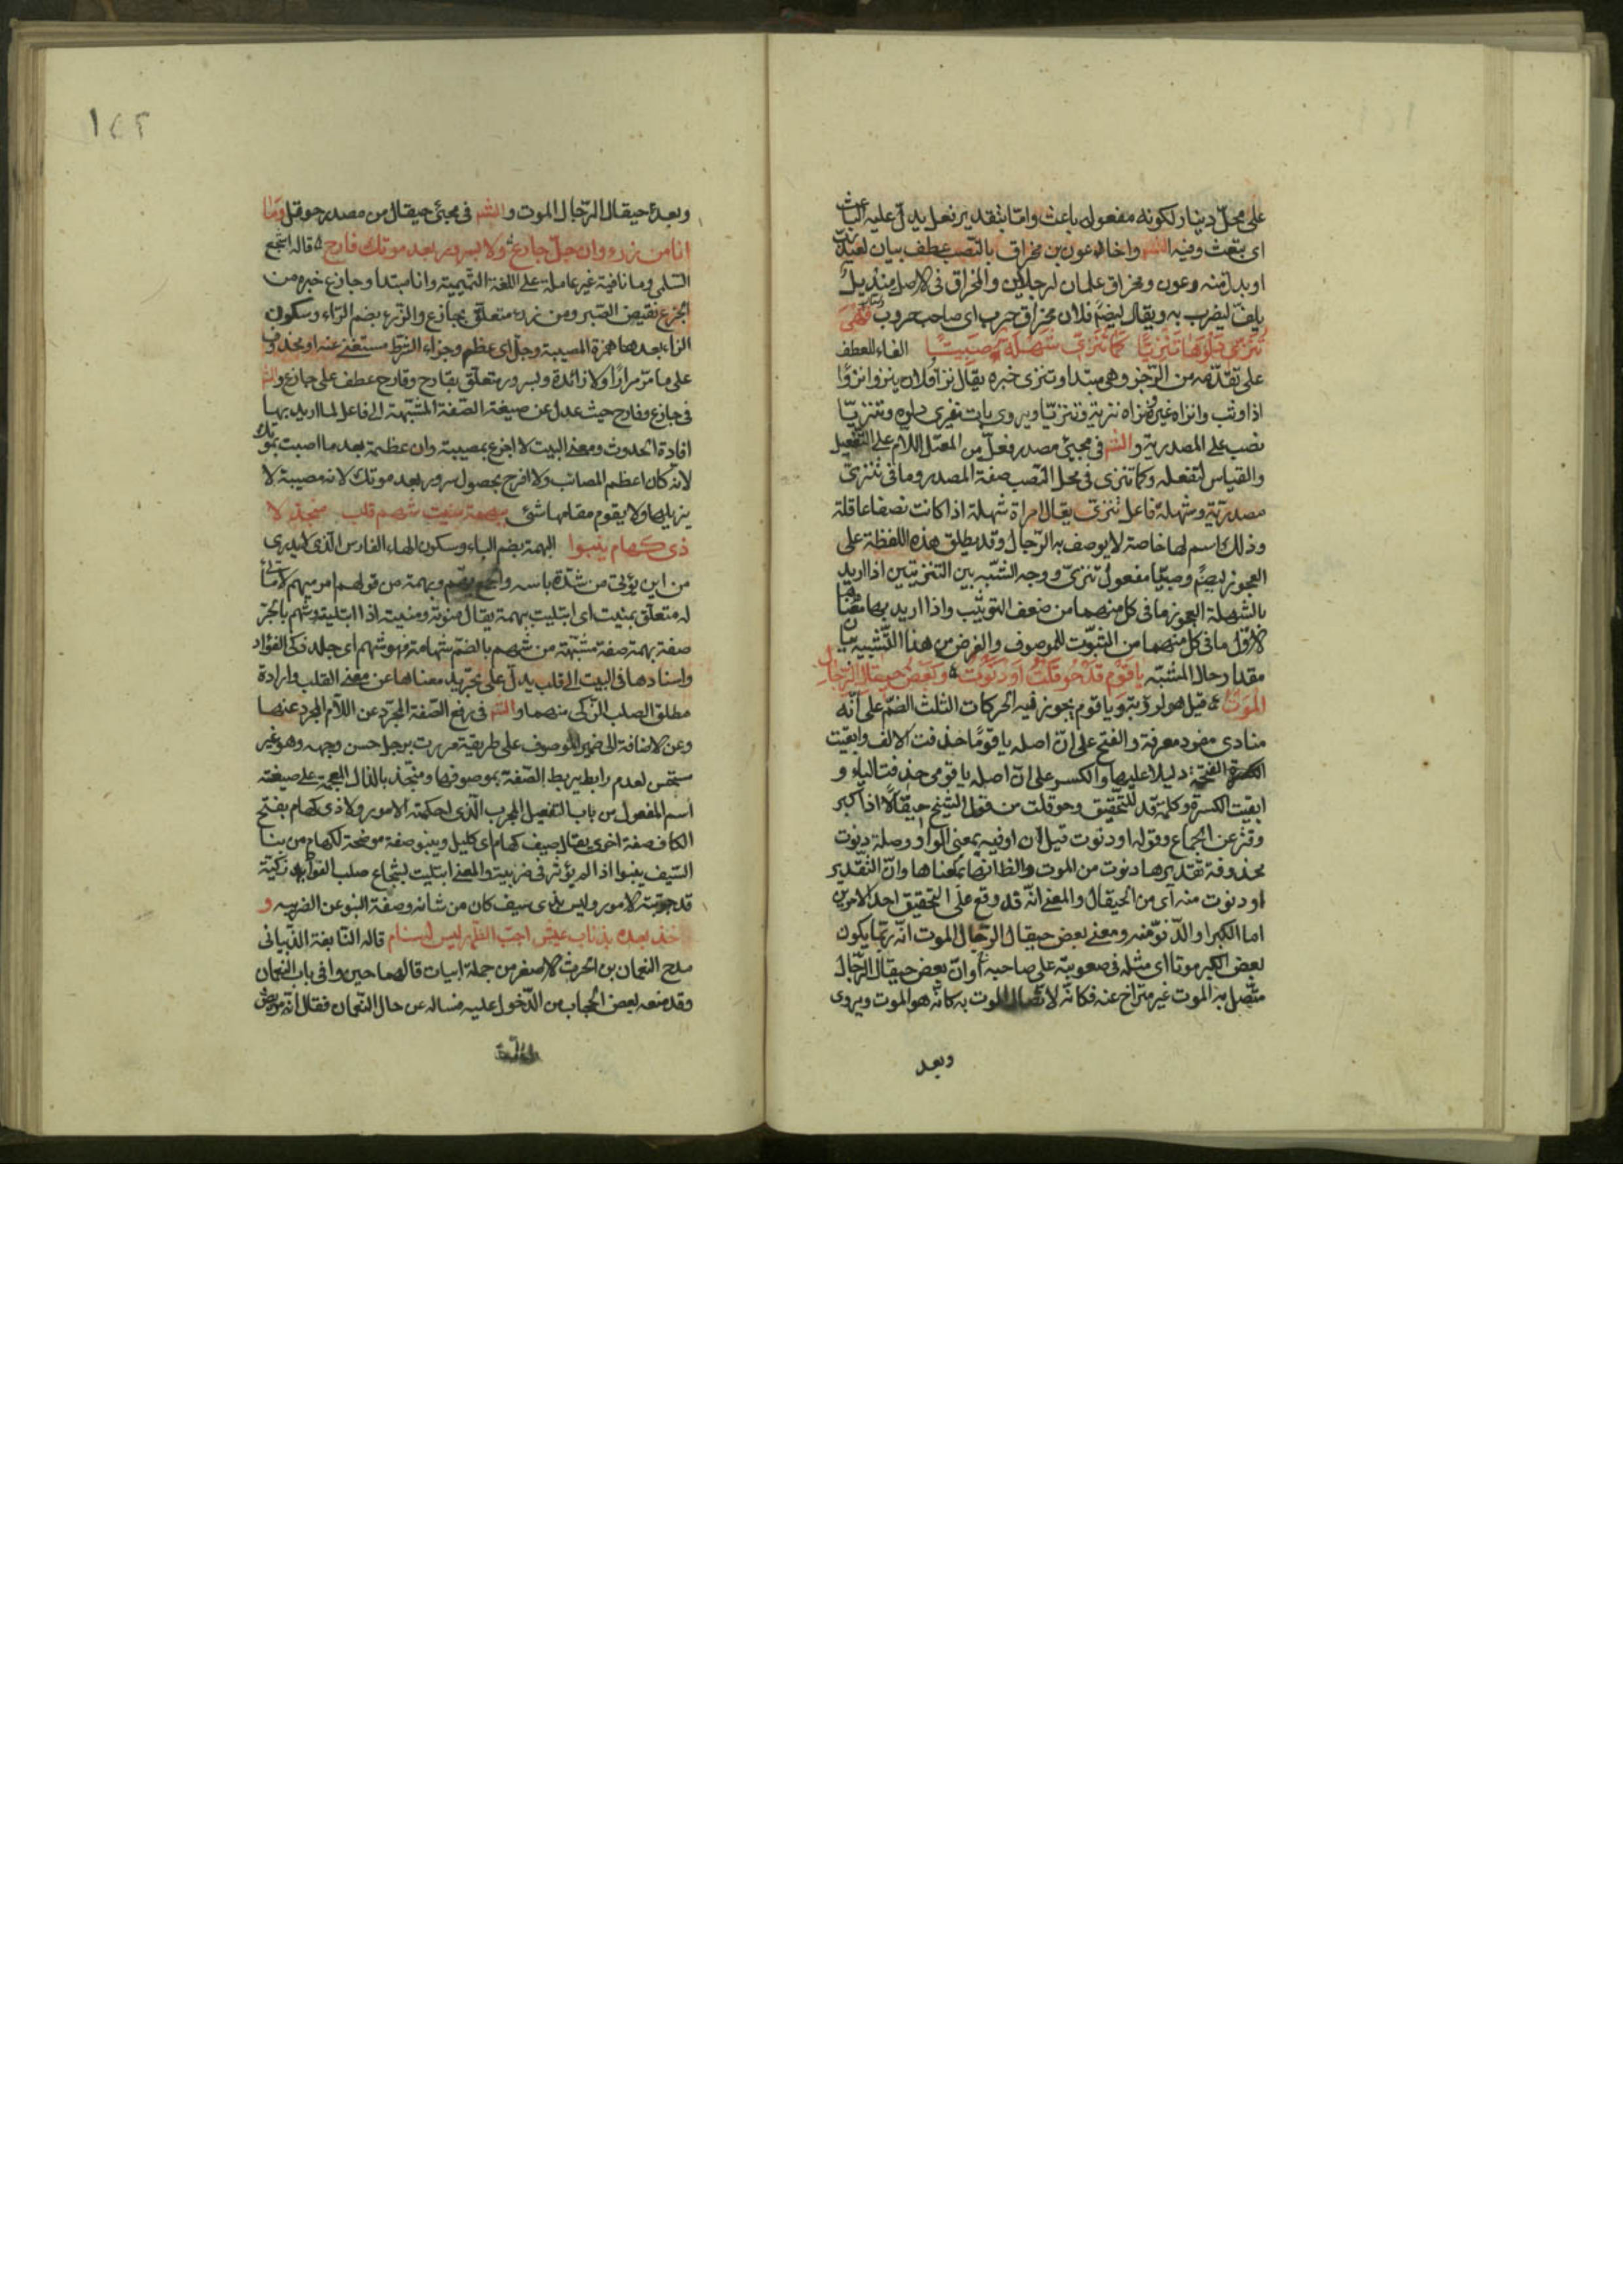 على محلّ دينار لكونه مفعول باعث وامّا بتقدير فعل يدلّ عليه الباعث
اى تبعث وفيه الشـ واخا عون بن مخراق بالنّصب عطف بيان لعبد ربّ
او بدل منه وعون ومخراق علمان لرجلين والمخراق فى الاصل منديل
يلفّ ليضرب به ويقال ايضًا فلان مخراق حرب اى صاحب حروب فَهْىَ
تُنَزّى دَلْوَهَا تَنْزِيًّا كَمَا تُنَزّى شَهْلَةٌ صَبِيًّا الفاء للعطف
على تقدّمه من الرّجز وهى مبتدا وتنزى خبره يقال نزا فلان ينزو نزوًا
اذا وثب وانزاه غيره ونزاه تنزية وتنزيّا ويروى باتت تنزى دلوه وتنزيّا
نصب على المصدرية والشـ فى مجيئ مصدر فعل من المعتل اللام على التفعيل
والقياس لتفعله وكما تنزى فى محل النّصب صفة المصدر وما فى تنزىّ
مصدريّة وشهلة فاعل تنزى يقال امراة شهلة اذا كانت نصفا عاقلة
وذلك اسم لها خاصة لا يوصف به الرّجال وقد يطلق هذه اللفظة على
العجوز ايضًا وصبيّا مفعول تنزىّ ووجه الشّبه بين التنزيتين اذا اريد
بالشهلة العجوز ما فى كل منهما من ضعف التوثّب واذا اريد بها معناها
الاوّل ما فى كل منهما من الثبوت للموصوف والغرض من هذا التّشبيه بيان
مقدار حال المشبّه يا قَوْمِ قَدْ حَوقَلْتُ اَوْ دَنَوْتُ وَبَعْضُ حِيقَالِ الرّجَالِ
المَوْتُ قيل هو لرؤبة ويا قوم يجوز فيه الحركات الثلث الضمّ على انّه
منادى مفرد معرفة والفتح على انّ اصله يا قومًا حذفت الالف وابقيت
الفتحة دليلا عليها والكسر على انّ اصله يا قومى حذفت الياء و
ابقيت الكسرة وكلمة قد للتّحقيق وحوقلت من حوقل الشّيخ حيقالًا اذا كبر
وفتر عن الجماع وقوله او دنوت قيل ان او فيه بمعنى الواو وصلة دنوت
محذوفة تقديرها دنوت من الموت والظ انها بمعناها وانّ التّقدير
او دنوت منه اى من الحيقال والمعنى انّه قد وقع على التحقيق احد الامرين
اما الكبر او الدّنوّ منه ومعنى بعض حيقال الرّجال الموت انّه ربّما يكون
بعض الكبر موتا اى مثله فى صعوبته على صاحبه او انّ بعض حيقال الرّجال
متّصل به الموت غير متراخ عنه فكانّه لاتصال الموت به كانّه هو الموت ويروى
وبعد
١٤٢
وبعد حيقال الرّجال الموت والشـ فى مجيئ حيقال من مصدر حوقل وَمَا
انا من رزء وان جلّ جازع ولا بسرور بعد موتك فارح قاله اشجع
السّلمى وما نافية غير عاملة على اللّغة التّميمية وانا مبتدا وجازع خبره من
الجزع نقيض الصّبر ومن رزء متعلّق بجازع والرّزء بضم الرّاء وسكون
الزاء بعدها همزة المصيبة وجلّ اى عظم وجزاء الشرط مستغنى عنه او محذوف
على ما مرّ مرارًا ولا زائدة وبسرور متعلّق بفارح وفارح عطف على جازع والشـ
فى جازع وفارح حيث عدل عن صيغة الصّفة المشبّهة الى فاعل لما اريد بها
افادة الحدوث ومعنى البيت لا اجزع بمصيبة وان عظمة بعد ما اصبت بموتك
لانه كان اعظم المصائب ولا افرح بحصول سرور بعد موتك لانه مصيبة لا
يزيلها ولا يقوم مقامها شئ ببهمة منيت شهم قلب منجذ لا
ذى كهام ينبوا البهمة بضم الباء وسكون الهاء الفارس الّذى لا يدرى
من اين يؤتى من شدّة باسه والجمع بهم وبهمة من قولهم امر مبهم لا ماتى
له متعلّق بمنيت اى ابتليت ببهمة يقال منوته ومنيته اذا ابتليته وشهم بالجرّ
صفة بهمة صفة مشبّهة من شهم بالضمّ شهامة فهو شهم اى جلد ذكى الفؤاد
واسنادها فى البيت الى قلب يدلّ على تجريد معناها عن معنى القلب وارادة
مطلق الصلب الذّكى منهما والشـ فى رفع الصّفة المجرّد عن اللّام المجرد عنهما
وعن الاضافة الى ضمير الموصوف على طريقة مررت برجل حسن وجهه وهو غير
مستحسن لعدم رابط يربط الصّفة بموصوفها ومنجّذ بالذال المعجمة على صيغة
اسم المفعول من باب التفعيل المجرب الّذى احكمته الامور ولا ذى كهام بفتح
الكاف صفة اخرى يقال سيف كهام اى كليل وينبو صفة موضحة لكهام من نبا
السّيف ينبوا اذا لم يؤثر فى ضريبته والمعنى ابتليت بشجاع صلب الفؤاد ذكيّه
قد جرّبته الامور وليس بذى سيف كان من شانه وصفة النبو عن الضريبه و
ناخذ بعده بذناب عيش اجبّ الظّهر ليس له سنام قاله النّابغة الذّبيانى
مدح النعمان بن الحرث الاصغر من جملة ابيات قالها حين وافى باب النعمان
وقد منعه بعض الحجاب من الدّخول عليه فساله عن حال النّعمان فقال انّه مريض